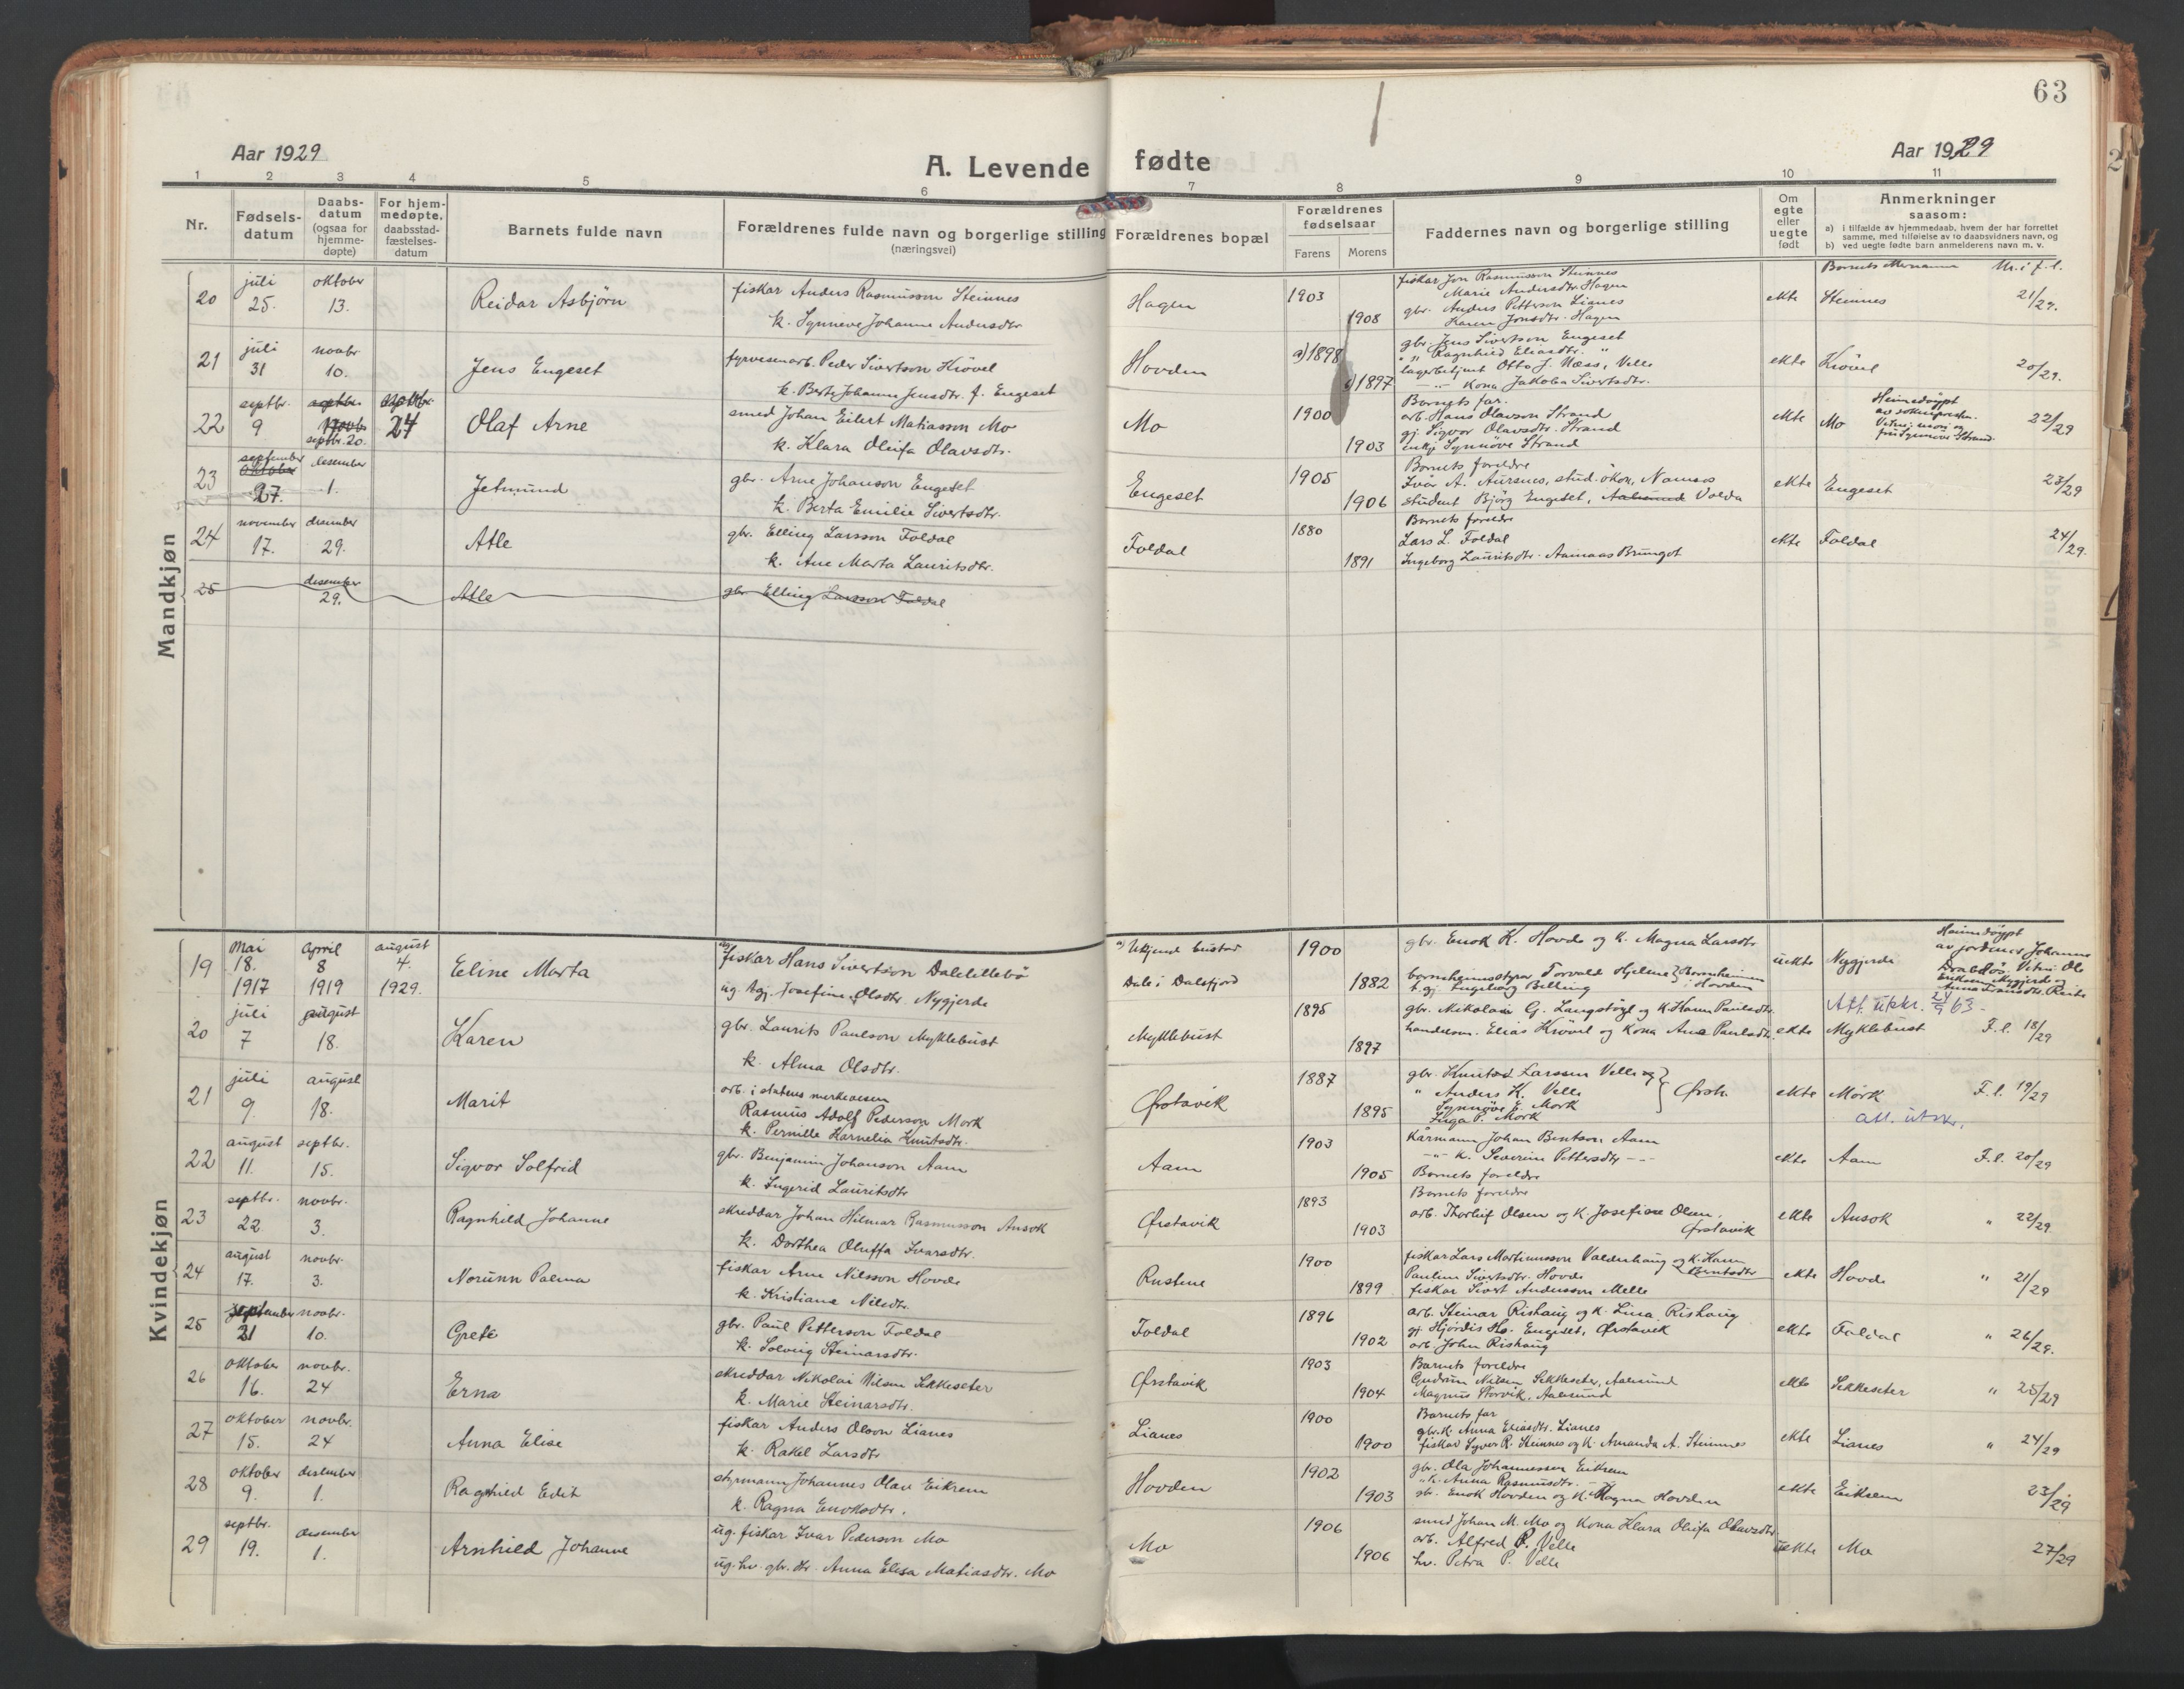 63
Aar 1929
A. Levende fødte
Aar 1929
1 2 3 4 5 6 7 8 9 10 11
Nr.
Fødsels-
datum
Daabs-
datum
(ogsaa for
hjemme-
døpte)
For hjem-
medøpte,
daabsstad-
fæstelses-
datum
Barnets fulde navn
Forældrenes fulde navn og borgerlige stilling
(næringsvei)
Forældrenes bopæl
Forældrenes
fødselsaar
Farens Morens
Faddernes navn og borgerlige stilling
Om
egte
eller
uegte
født
Anmerkninger
saasom:
a) i tilfælde av hjemmedaab, hvem der har forrettet
samme, med tilføielse av to daabsvidners navn, og
b) ved uegte fødte barn anmelderens navn m. v.
Mandkjøn
Nr. i f. l.
20
juli
25.
oktober
13.
Reidar Asbjörn
fiskar Anders Rasmusson Steinnes
k. Synneve Johanne Andersdtr.
Hagen
1903
1908
fiskar Jon Rasmusson Steinnes
Marie Andersdtr. Hagen
gbr. Anders Petterson Lianes
Karen Jonsdtr. Hagen
ekte
Steinnes
21/29.
21
juli
31
novbr.
10.
Jens Engeset
fyrvesenarb. Peder Sivertson Krövel
k. Berte Johanna Jensdtr. f. Engeset
Hovden
a) 1898
1897
gbr. Jens Sivertson Engeset
" Ragnhild Eliasdtr. "
lagerbetjent Otto J. Næss, Velle
-"- Kona Jakoba Sivertsdtr.
ekte
Krövel
20/29.
22
septbr.
9
septbr. 20.
24
Olaf Arne
smed Johan Eilert Matiasson Mo
k. Klara Olufa Olavsdtr.
Mo
1900
1903
Barnets far.
arb. Hans Olavson Strand
gj. Sigvor Olavsdtr. Strand
enkj. Synnöve Strand
ekte
Mo
Heimedöypt
av soknepresten.
Vitni: mori og
frü Synnöve Strand.
22/29
23
september
oktober
27.
desember
1.
Jetmund
gbr. Arne Johanson Engeset
k. Berta Emilie Sivertsdtr.
Engeset
1905
1906
Barnets foreldre
Ivar A. Aursnes, stud. ökon, Namsos
student Björg Engeset, Aalesund Volda
ekte
Engeset
23/29
24
november
17.
desember
29.
Atle
gbr. Elling Larsson Foldal
k. Ane Marta Lauritsdtr.
Foldal
1880
1891
Barnets foreldre
Lars L. Foldal
Ingeborg Lauritsdtr. Aamaas Brungot
ekte
Foldal
24/29.
25
desember
29.
Atle
gbr Elling Larsson Foldal
Kvindekjøn
19
mai
18.
1917
april
8
1919
august
4.
1929.
Eline Marta
fiskar Hans Sivertson Dalelillebö
ug. tgj. Josefine Olsdtr. Nygjerde
a) Ukjend bustad
Dale i Dalsfjord
1900
1882
gbr. Enok K. Hovde og k. Magna Larsdtr
barneheimsstyrar Torvald Hjelme } Barnheimen
t.gj. Ingeborg Belling i Hovden
uekte
Nygjerde
Heimedöypt
av jordmor Johanne
Vitni: Ole
Eriksen Nygjerde og
Att. utskr. 24/9 63 -
20
juli
7
august
18.
Karen
gbr. Laurits Paulson Myklebust
k. Alma Olsdtr.
Myklebust
1895
1897
gbr. Mikolai G. Langstöyl og k. Hanna Paulsdtr.
handelsm. Elias Krövel og kona Ane Paulsdtr.
ekte
Myklebust
F. l. 18/29
21
juli
9.
august
18.
Marit
arb. i statens merkevesen
Rasmus Adolf Pederson Mork
k. Pernille Karnelia Knutsdtr.
Ørstavik
1887
1895
gbr. Knut Larsson Velle og }
" Anders K. Velle
Synnöve E. Mork
Inga P. Mork
Ørsta
ekte
Mörk
F. l. 19/29
att. utskr.
22
august
11.
septbr.
15.
Sigvor Solfrid
gbr. Benjamin Johanson Aam
k. Ingerid Lauritsdtr
Aam
1903
1905
Kårmann Johan Bentson Aam
-"- k. Severine Pettersdtr -"-
Barnets foreldre
ekte
Aam
F. l. 20/29
23
septbr.
22.
novbr.
3.
Ragnhild Johanne
skreddar Johan Hilmar Rasmusson Ansok
k. Dorthea Oluffa Ivarsdtr.
Ørstavik
1893
1903
Barnets foreldre
arb. Thorleif Olsen og k. Josefine Olsen.
Ørstavik
ekte
Ansok
" 22/29.
24
august
17.
novbr.
3.
Norunn Palma
fiskar Arne Nilsson Hovde
k. Kristiane Nilsdtr.
Rustene
1900
1899
fiskar Lars Martinusson Valderhaug og k. Hanna
Bentsdtr
Pauline Sivertsdtr. Hovde
fiskar Sivert Andersson Melle
ekte
Hovde
" 21/29
25
september
21
novbr.
10.
Grete
gbr. Paul Petterson Foldal
k. Solveig Steinarsdtr.
Foldal
1896
1902
arb. Steinar Rishaug og k. Lina Rishaug
gj. Hjördis Hs. Engeset, Ørstavik
arb. John Rishaug
ekte
Foldal
" 26/29.
26
oktober
16.
novbr.
24
Erna
skreddar Nikolai Nilsen Sekkeseter
k. Marie Steinarsdtr.
Ørstavik
1903
1904
Barnets foreldre
Gudrun Nilsen Sekkeseter, Aalesund
Magnus Storvik, Aalesund
ekte
Sekkeseter
" 25/29
27
oktober
15.
novbr.
24
Anna Elise
fiskar Anders Olson Lianes
k. Rakel Larsdtr
Lianes
1900
1900
Barnets far
gbr.k. Anna Eliasdtr. Lianes
fiskar Syver R. Steinnes og k. Amanda A. Steinnes
ekte
Lianes
" 24/29
28
oktober
9.
desember
1.
Ragnhild Edit
styrmann Johannes Olav Eikrem
k. Ragna Enoksdtr.
Hovden
1902
1903
gbr. Ola Johannessen Eikrem
" k. Anna Rasmusdtr. -"-
gbr. Enok Hovden og k. Magna Hovden
ekte
Eikrem
23/29
29
septbr.
19.
desember
1.
Arnhild Johanne
ug. fiskar Ivar Pederson Mo
ug. hv. gbr. dtr. Anna Elisa Matiasdtr. Mo
Mo
1906
1906
smed Johan M. Mo og kona Klara Olufa Olavsdtr
arb. Alfred P. Velle
hv. Petra P. Velle
uekte
Mo
27/29